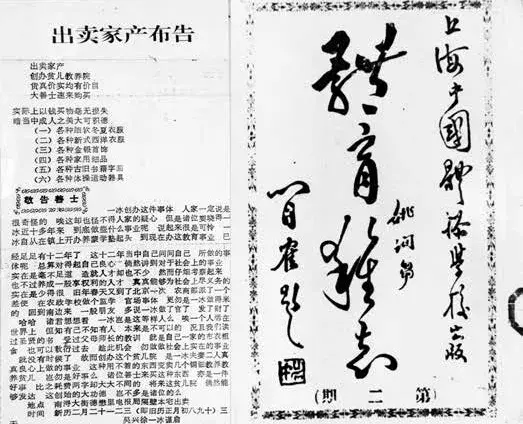 出卖家产布告
出卖家产
创办贫儿教养院
货真价实均有价目
大善士速来购买
实际上以钱买物毫无损失
暗当中成人之美大可积德
(一)各种细软冬夏衣服
(二)各种新式西洋衣服
(三)各种金银首饰
(四)各种家用细品
(五)各种古旧书籍字画
(六)各种体操运动器具
敬告善士
一冰创办这件事体 人家一定说是
很奇怪的 唉这却也怪不得人家的疑心 但是诸位要晓得一
冰近十多年来 到底做些什么事业呢 说起来很是可怜 一
冰自从在镇上开办蒙学塾起头 到现在办这教育事业 已
经足足有十二年了 这十二年当中自己问问自己 所做的事
体呢 总算对得起自己良心 倘然讲到对于社会上的事业
实在是毫不足道 造就人才却也不少 然而仔细考察起来
也不过养成一般享权利的人才 真真能够为社会上尽义务的
实在是少得很 年春天又到了北京一次 农商部派了一个
差使 在农政学校做个监学 官场事体 更是一冰做得来
的 回到南边来 一般朋友 多说一冰做了官了 发了财了
哈哈 诸君想想看 一冰岂是这等样人么 唉一个人活在
世界上 但知有己不知有人 本来是不可以的 况且我们读
过圣贤的书 受过父母师长的教训 就是自己一家的布衣粗
食 也可以敷衍过去 趁此机会 勿做做社会上实在的事业
就没有时候了 故而创办这个贫儿院 是一冰夫妻二人真
真良心上做的事业 这种用不着的东西变卖几个铜钿教养教
养贫儿 岂勿是好事么 诸位善士来买这种东西 亦是一件
好事 比之耗费两字却大大不同的 将来这贫儿院 倘然能
够发达 这创始的大功德 岂不多是诸位的么
地点 南浔大街德懋里电报局隔壁本宅出卖
时间 新历二月二十一二三(即旧历正月初八九十)三
吴兴徐一冰谨启
上海中國體操學校出版
體育雜志
第二期